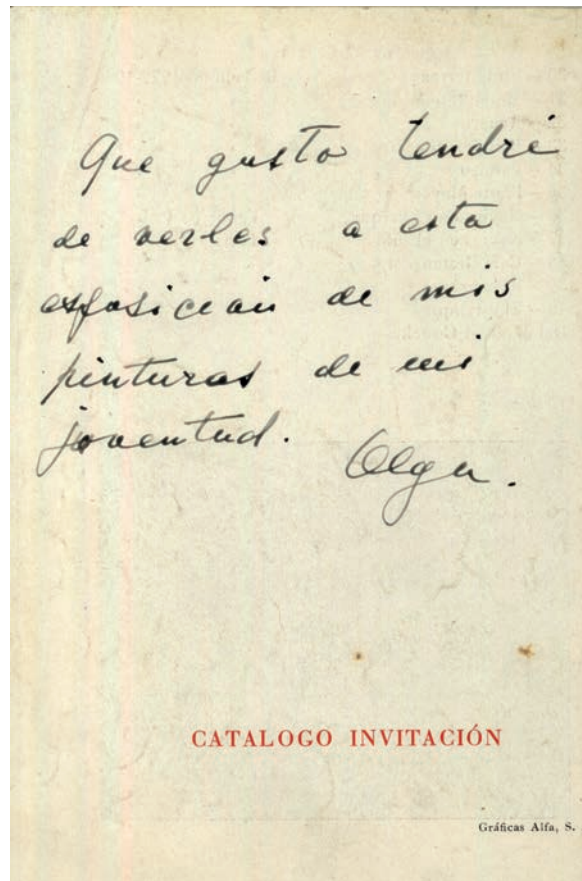 Que gusto tendré
de verles a esta
exposición de mis
pinturas de mi
joventud.
Olga.
CATALOGO INVITACIÓN
Gráficas Alfa, S.